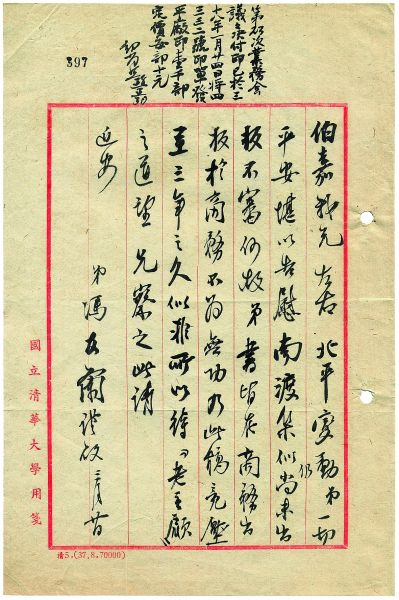 397
業務會
議決付印已於三
十八年一月廿四日將四
三三二號印單發
平廠印壹千部
定價每部十元
伯嘉我兄左右北平變動弟一切
平安堪以告慰南渡集似仍尚未出
板不審何故弟書皆在商務出
板於商務不為無功乃此稿竟壓
至三年之久似非所以待“老主顧”
之道望兄察之此請
近安
弟馮友蘭謹啟三月
國立清華大學用箋
清5.(37,8.70000)